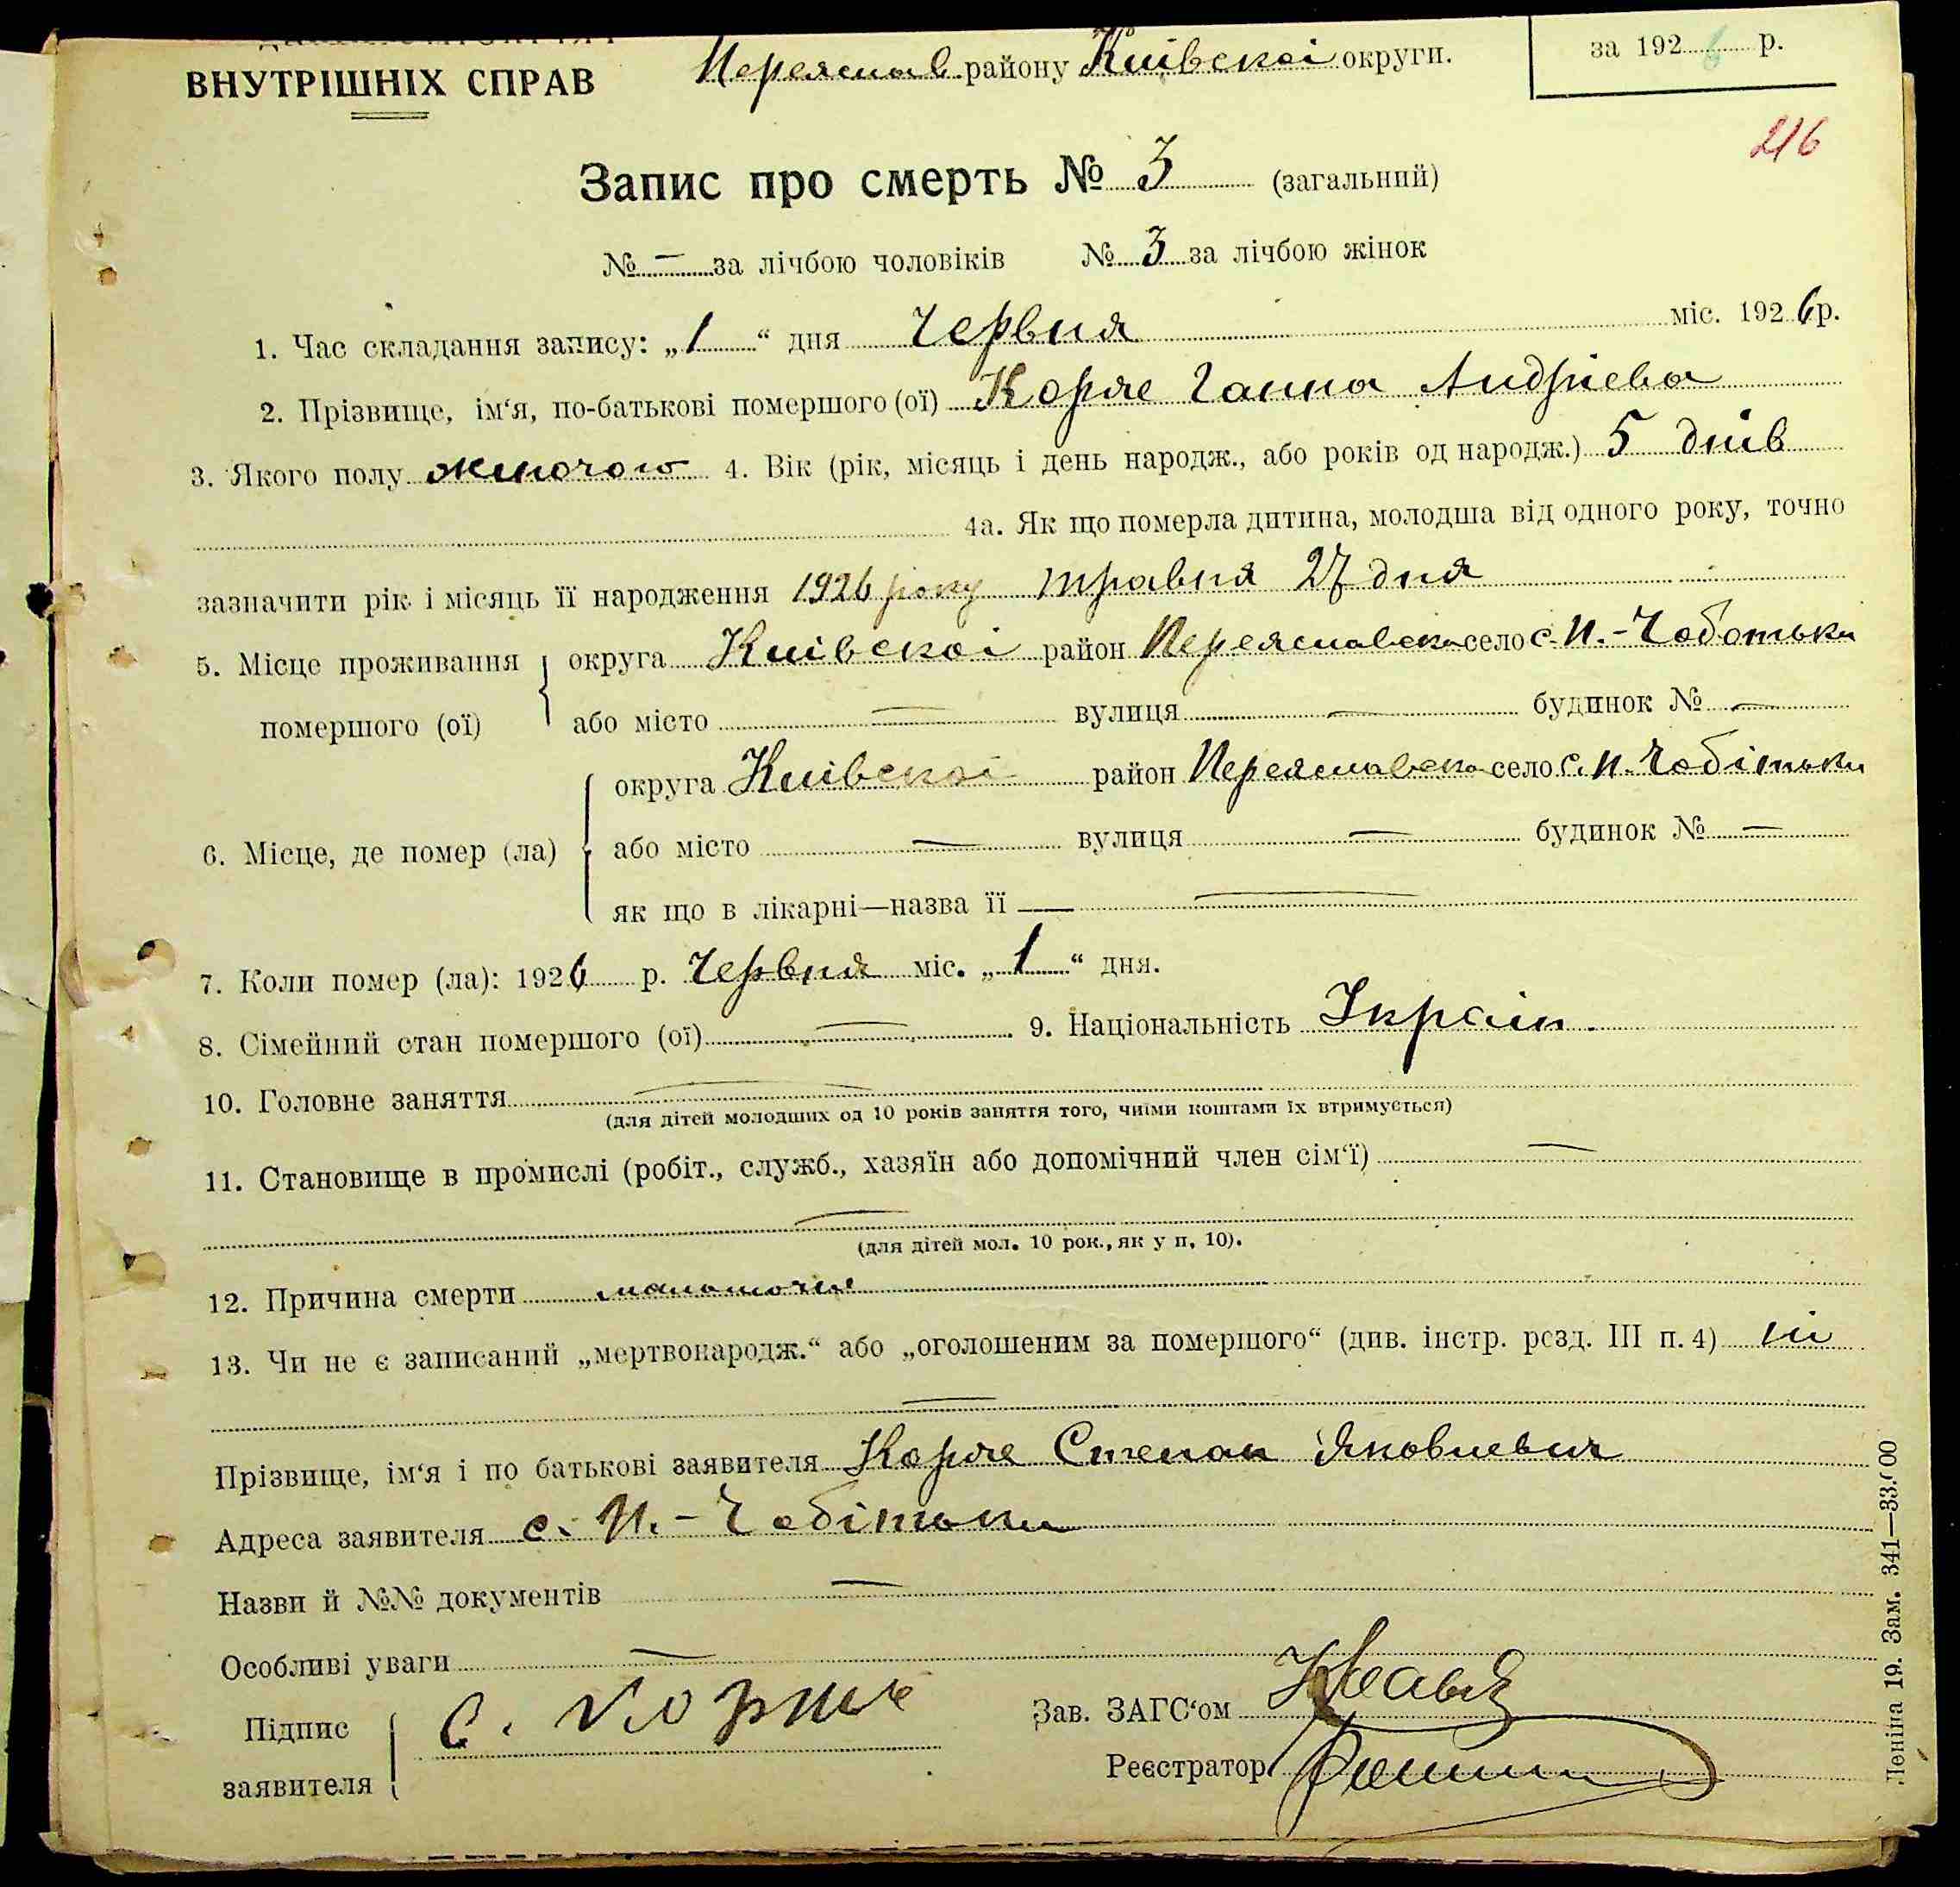 ВНУТРІШНІХ СПРАВ
Переяслав району Київскоі округи.
за 1926 р.
216
Запис про смерть № 3 (загальний)
№ — за лічбою чоловіків № 3 за лічбою жінок
1. Час складання запису: „1“ дня Червня міс. 1926 р.
2. Прізвище, ім‘я, по-батькові помершого (ої) Корже Ганна Андрієва
3. Якого полу жіночого 4. Вік (рік, місяць і день народж., або років од народж.) 5 днів
4а. Як що померла дитина, молодша від одного року, точно
зазначити рік і місяць її народження 1926 року травня 27 дня
5. Місце проживання помершого (ої)
округа Київскоі район Переяславськ село с. П.-Чоботьки
або місто — вулиця — будинок № —
6. Місце, де помер (ла)
округа Київскоі район Переяславськ село с. П. Чобітьки
або місто — вулиця — будинок № —
як що в лікарні—назва її —
7. Коли помер (ла): 1926 р. Червня міс. „1“ дня.
8. Сімейний стан помершого (ої) — 9. Національність Украін.
10. Головне заняття —
(для дітей молодших од 10 років заняття того, чиїми коштами їх втримується)
11. Становище в промислі (робіт., служб., хазяїн або допомічний член сім‘ї) —
—
(для дітей мол. 10 рок., як у п. 10).
12. Причина смерти
13. Чи не є записаний „мертвонародж.“ або „оголошеним за помершого“ (див. інстр. розд. III п. 4) ні
—
Прізвище, ім‘я і по батькові заявителя Корже Степан Яковлевич
Адреса заявителя с. П.-Чобітьки
Назви й №№ документів —
Особливі уваги —
Підпис заявителя С. Корже
Зав. ЗАГС‘ом
Реєстратор
Леніна 19. Зам. 341—33.000